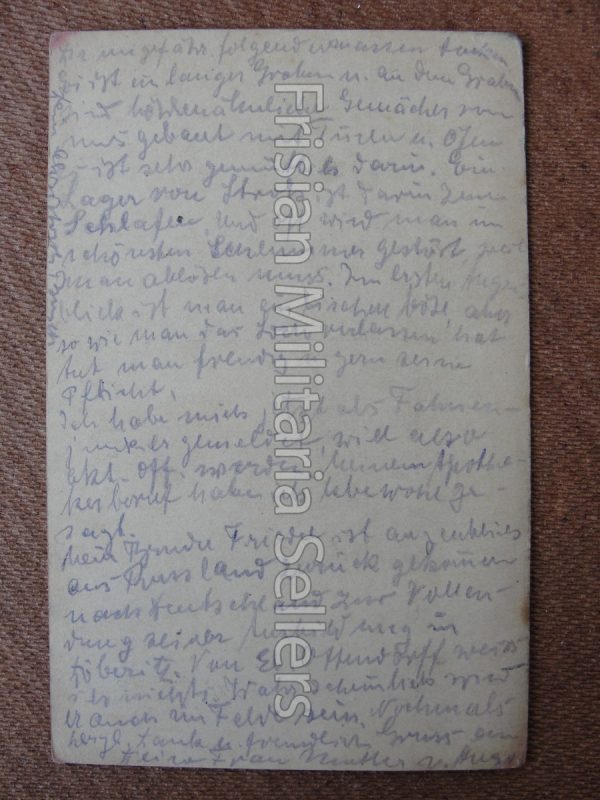 wie ungefähr folgendermassen
ist ein langer Graben u. an dem Graben
sind höhlenähnliche Gemächer von
uns gebaut mit Türen u. Öfen
ist sehr gemütlich darin. Ein
Lager von Stroh ist darin zum
Schlafen. Und wird man im
schönsten Schlummer gestört weil
man ablösen muss. Im ersten Augen-
blick ist man böse, aber
so wie man das verlassen hat
tut man freudig u. gern seine
Pflicht.
Ich habe mich jetzt als Fahnen-
junker gemeldet, will also
akt. Off. werden, meinem Apothe-
kerberuf habe ich Lebewohl ge-
sagt.
Mein Bruder Friedel ist augenblickl.
aus Russland zurück gekommen
nach Deutschland zur Vollen-
dung seiner Ausbildung in
Döberitz. Von weiss
ich nichts. Wahrscheinlich wird
er auch im Felde sein. Nochmals
herzl. Dank u. freundlichen Gruss an
Deine Frau Mutter u.
Frisian Militaria Sellers